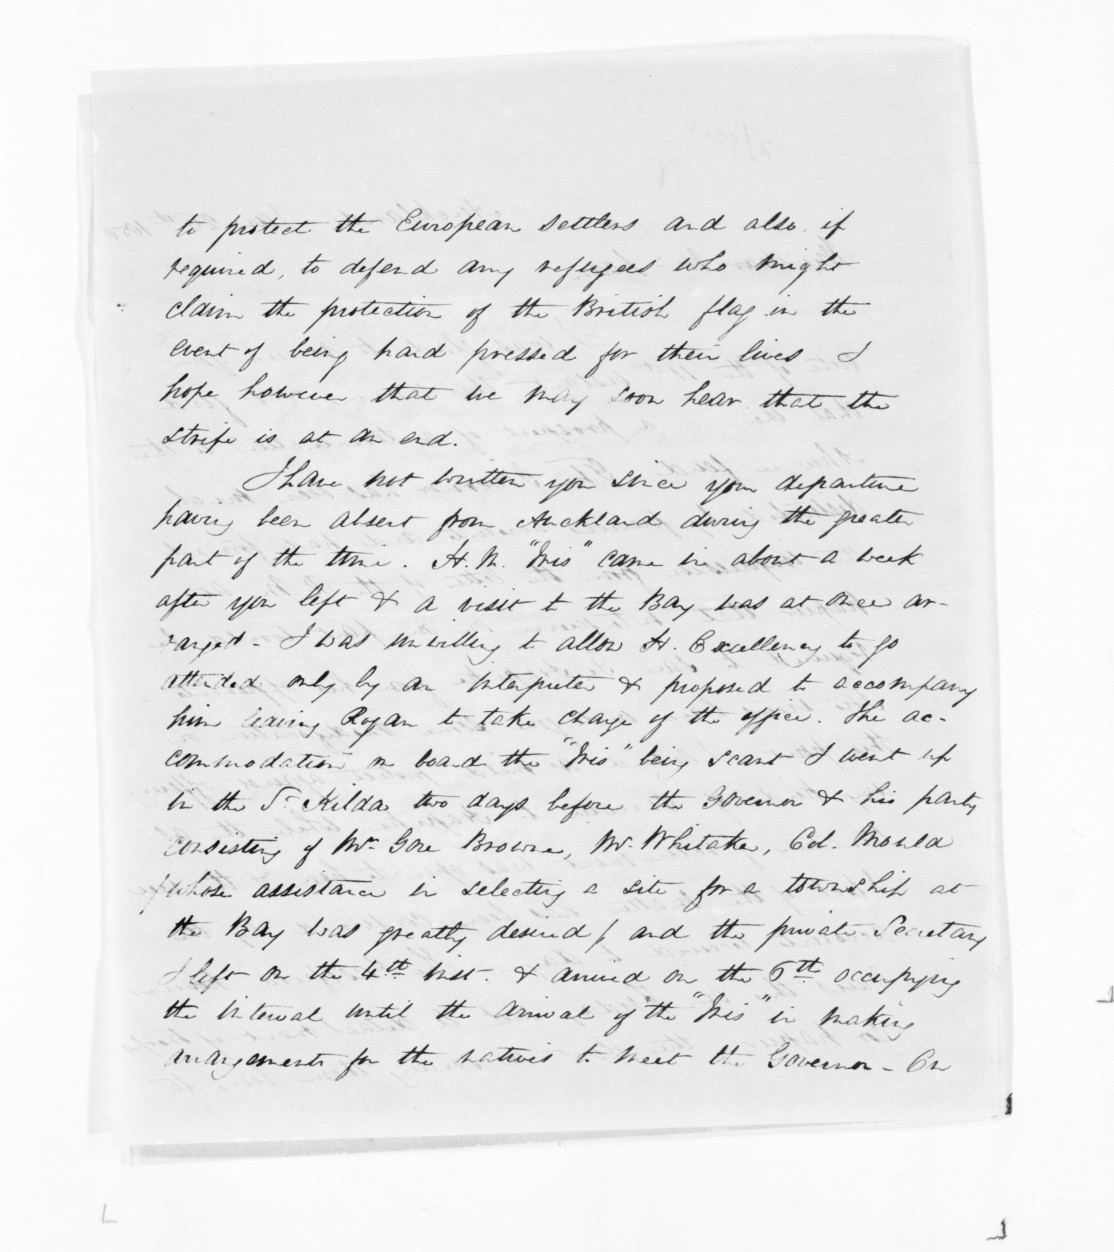 to protect the European settlers and also, if
required, to defend any refugees who might
claim the protection of the British flag in the
event of being hard pressed for their lives I
hope however that we may soon hear that the
strife is at an end.
I have not written you since your departure
having been absent from Auckland during the greater
part of the time. H. M. "Iris" came in about a week
after you left & a visit to the Bay was at once ar-
ranged - I was unwilling to allow H. Excellency to go
attended only by an Interpreter & proposed to accompany
him leaving Rogan to take charge of the office. The ac-
commodation on board the "Iris" being scant I went up
in the St Kilda two days before the Governor & his party
consisting of Mrs Gore Browne, Mr Whitaker, Col. Mould
(whose assistance in selecting a site for a township at
the Bay was greatly desired) and the private Secretary
I left on the 4th inst. & arrived on the 6th occupying
the interval until the arrival of the "Iris" in making
arrangements for the natives to meet the Governor - On